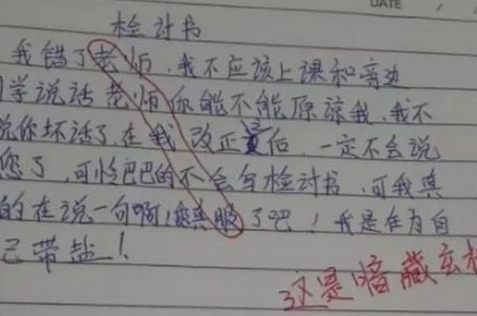 DATE
检讨书
我错了老师,我不应该上课和旁边
同学说话 老师你能不能原谅我,我不
说你坏话了,在我改正后,一定不会说
您了,可怜巴巴的不会写检讨书,可我真
的在说一句啊!您真服了吧!我是在为自
己带盐!
这是暗藏玄机